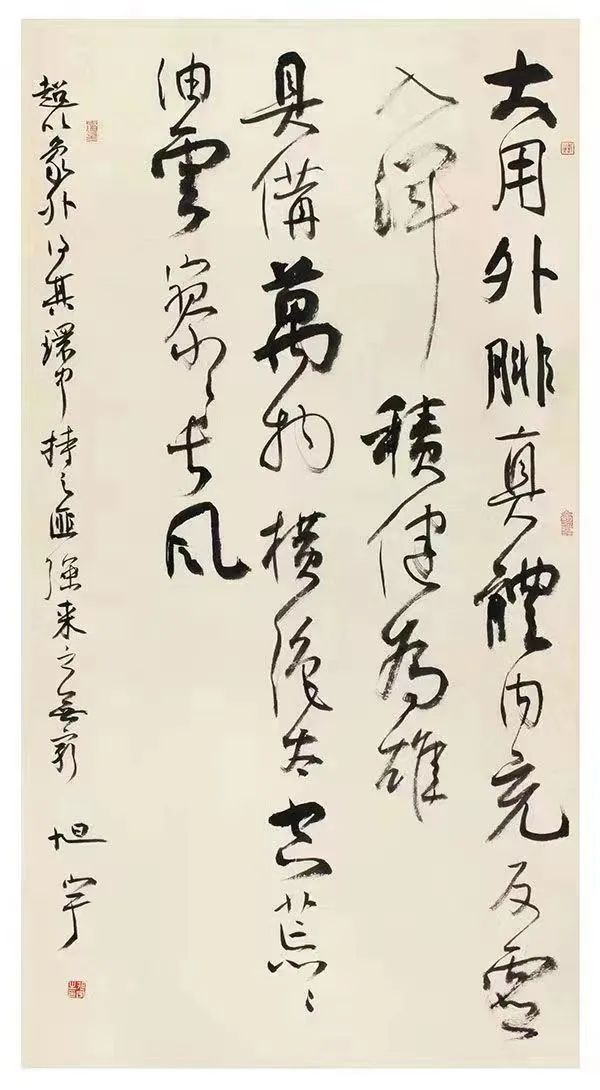 大用外腓真體内充反虛
入渾積健為雄
具備萬物橫絕太空荒〻
油雲寥〻長風
超以象外得其環中持之匪強来之無窮 旭宇